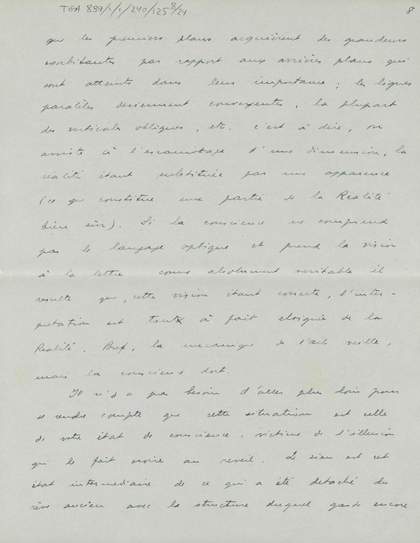 TGA 889/1/1/240/125 8/21
8
que les premiers plans acquièrent des grandeurs
exorbitantes par rapport aux arrières plans qui
sont atteints dans leur importance; les lignes
parallèles deviennent convergentes, la plupart
des verticales obliques, etc. c'est à dire, on
assiste à l'escamotage d'une dimension, la
réalité étant substituée par une apparence
(ce qui constitue une partie de la Réalité
bien sûr). Si la conscience ne comprend
pas le langage optique et prend la vision
à la lettre comme absolument véritable il
résulte que, cette vision étant correcte, l'inter-
prétation est tout à fait éloignée de la
Réalité. Bref, la mécanique de l'œil veille,
mais la conscience dort.
Il n'y a pas besoin d'aller plus loin pour
se rendre compte que cette situation est celle
de votre état de conscience, victime de l'illusion
qui le fait croire au réveil. Le sien est cet
état intermédiaire de ce qui a été détaché du
rêve ancien avec la structure duquel garde encore